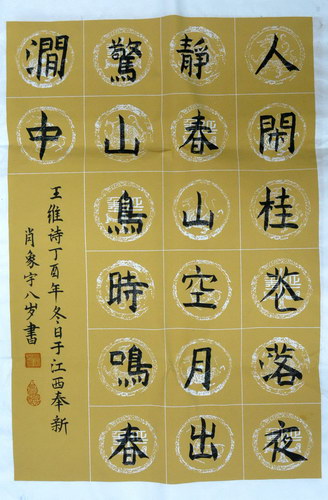 人閒桂花落夜
靜春山空月出
驚山鳥時鳴春
澗中
王維诗丁酉年冬日于江西奉新
肖象宇八岁書